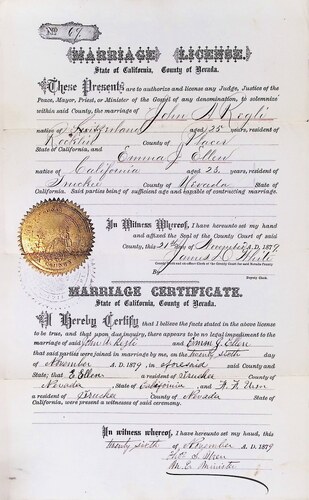 No 67
MARRIAGE LICENSE.
State of California, County of Nevada.
These Presents are to authorize and license any Judge, Justice of the
Peace, Mayor, Priest, or Minister of the Gospel of any denomination, to solemnize
within said County, the marriage of John A Kegli
native of Switzerland aged 25 years, resident of
Rocklin County of Placer
State of California, and Emma J Ellen
native of California aged 23 years, resident of
Truckee County of Nevada State of
California. Said parties being of sufficient age and capable of contracting marriage.
In Witness Whereof, I have hereunto set my hand
and affixed the Seal of the County Court of said
County, this 21st day of November A.D. 1879
James D White
County Clerk and ex-officio Clerk of the County Court for said Nevada County
By
Deputy Clerk.
MARRIAGE CERTIFICATE.
State of California, County of Nevada.
I Hereby Certify that I believe the facts stated in the above license
to be true, and that upon due inquiry, there appears to be no legal impediment to the
marriage of said John A Kegli and Emma J. Ellen
that said parties were joined in marriage by me, on the Twenty sixth day
of November A.D. 1879 in aforesaid said County and
State; that E Ellen a resident of Truckee County of
Nevada State of California and
a resident of Truckee County of Nevada State of
California, were present as witnesses of said ceremony.
In witness whereof, I have hereunto set my hand, this
Twenty sixth day of November A.D. 1879
Wren
M. E. Minister